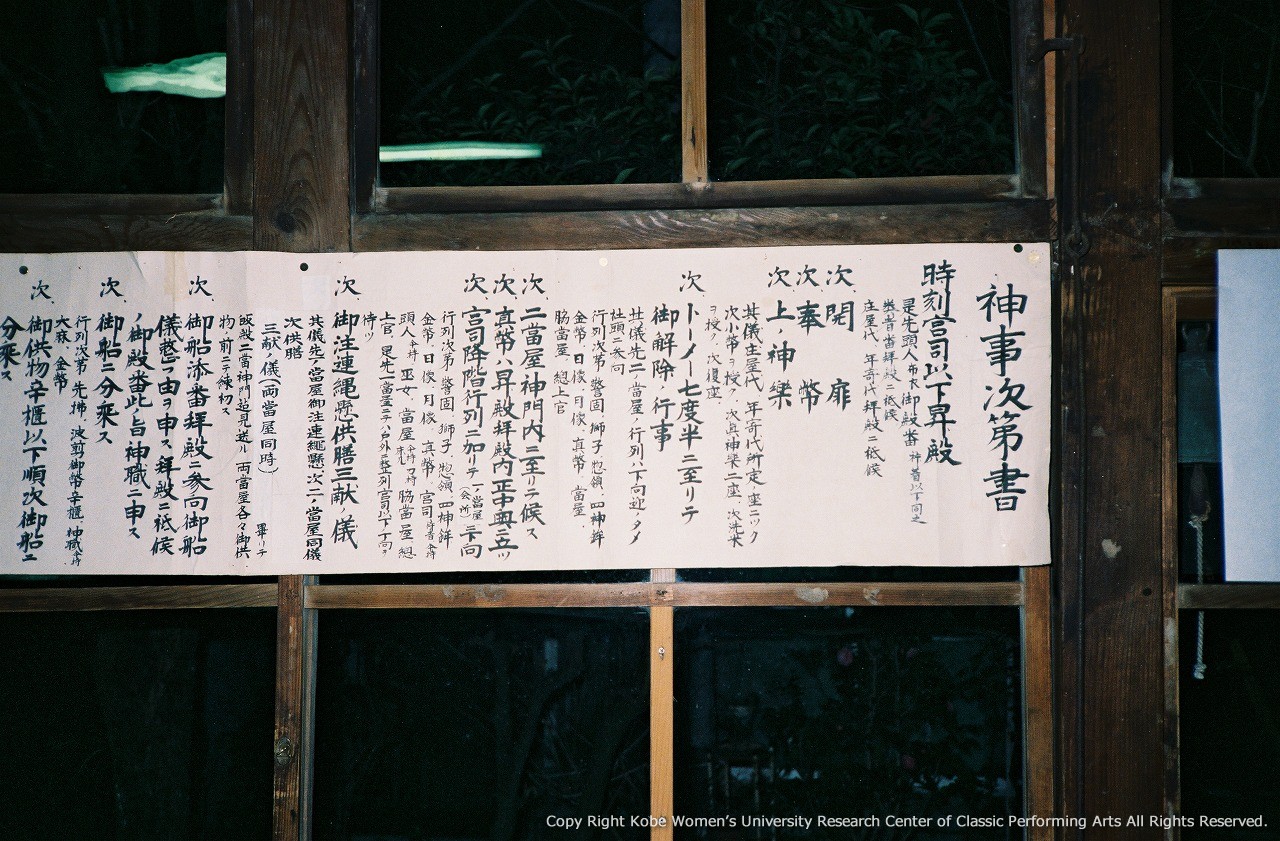 神事次第書
時刻宮司以下昇殿
是先頭人布衣御殿番神着以下同之
当屋代、年寄代拝殿ニ祗候
次、開扉
次、奉幣
次、上ノ神楽
其儀庄屋代、年寄代所定ノ座ニツク
次小幣ヲ授ク、次真神楽二座、次洗米
ヲ授ク、次復座
次、トーメー七度半ニ至リテ
御解除ノ行事
社儀先二ノ當屋ノ行列ハ下向迎ノタメ
社頭ニ参向
行列次第、警固、獅子、惣領、四神鉾
金幣、日像、月像、真幣、當屋、
脇當屋、總上官
次、二當屋神門内ニ至リテ候ス
次、真幣ハ昇殿拝殿内正中奥ニ立ツ
次、宮司降階行列ニ加リテ一ノ當屋(会所)ニ下向
行列次第、警固、獅子、惣領、四神鉾
金幣、日像、月像、真幣、宮司
頭人、巫女、當屋、脇當屋、總
上官、是先一當屋ニテハ戸外ニ整列宮司以下ノ下向ヲ
待ツ
次、御注連縄懸供膳三献ノ儀
其儀先一ノ當屋御注連縄懸、次二ノ當屋同儀
次供膳
三献ノ儀(両當屋同時) 畢リテ
飯殿二當神門迄見送ル両當屋各々御供
物ノ前ニテ練初ス
次、御船添番拝殿ニ参向御船
儀整フノ由ヲ申ス拝殿ニ祗候
ノ御殿番此ノ旨神職ニ申ス
次、御船ニ分乗ス
行列次第、先拂、波剪御幣辛櫃、神職
大麻、金幣
次、御供物辛櫃以下順次御船ニ
分乗ス
Copy Right Kobe Women's University Research Center of Classic Performing Arts All Rights Reserved.